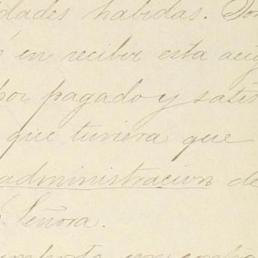 idades habidas. Por
é en recibir esta aci
por pagado y satis
que tuviera que
administracion de
S. Señora.